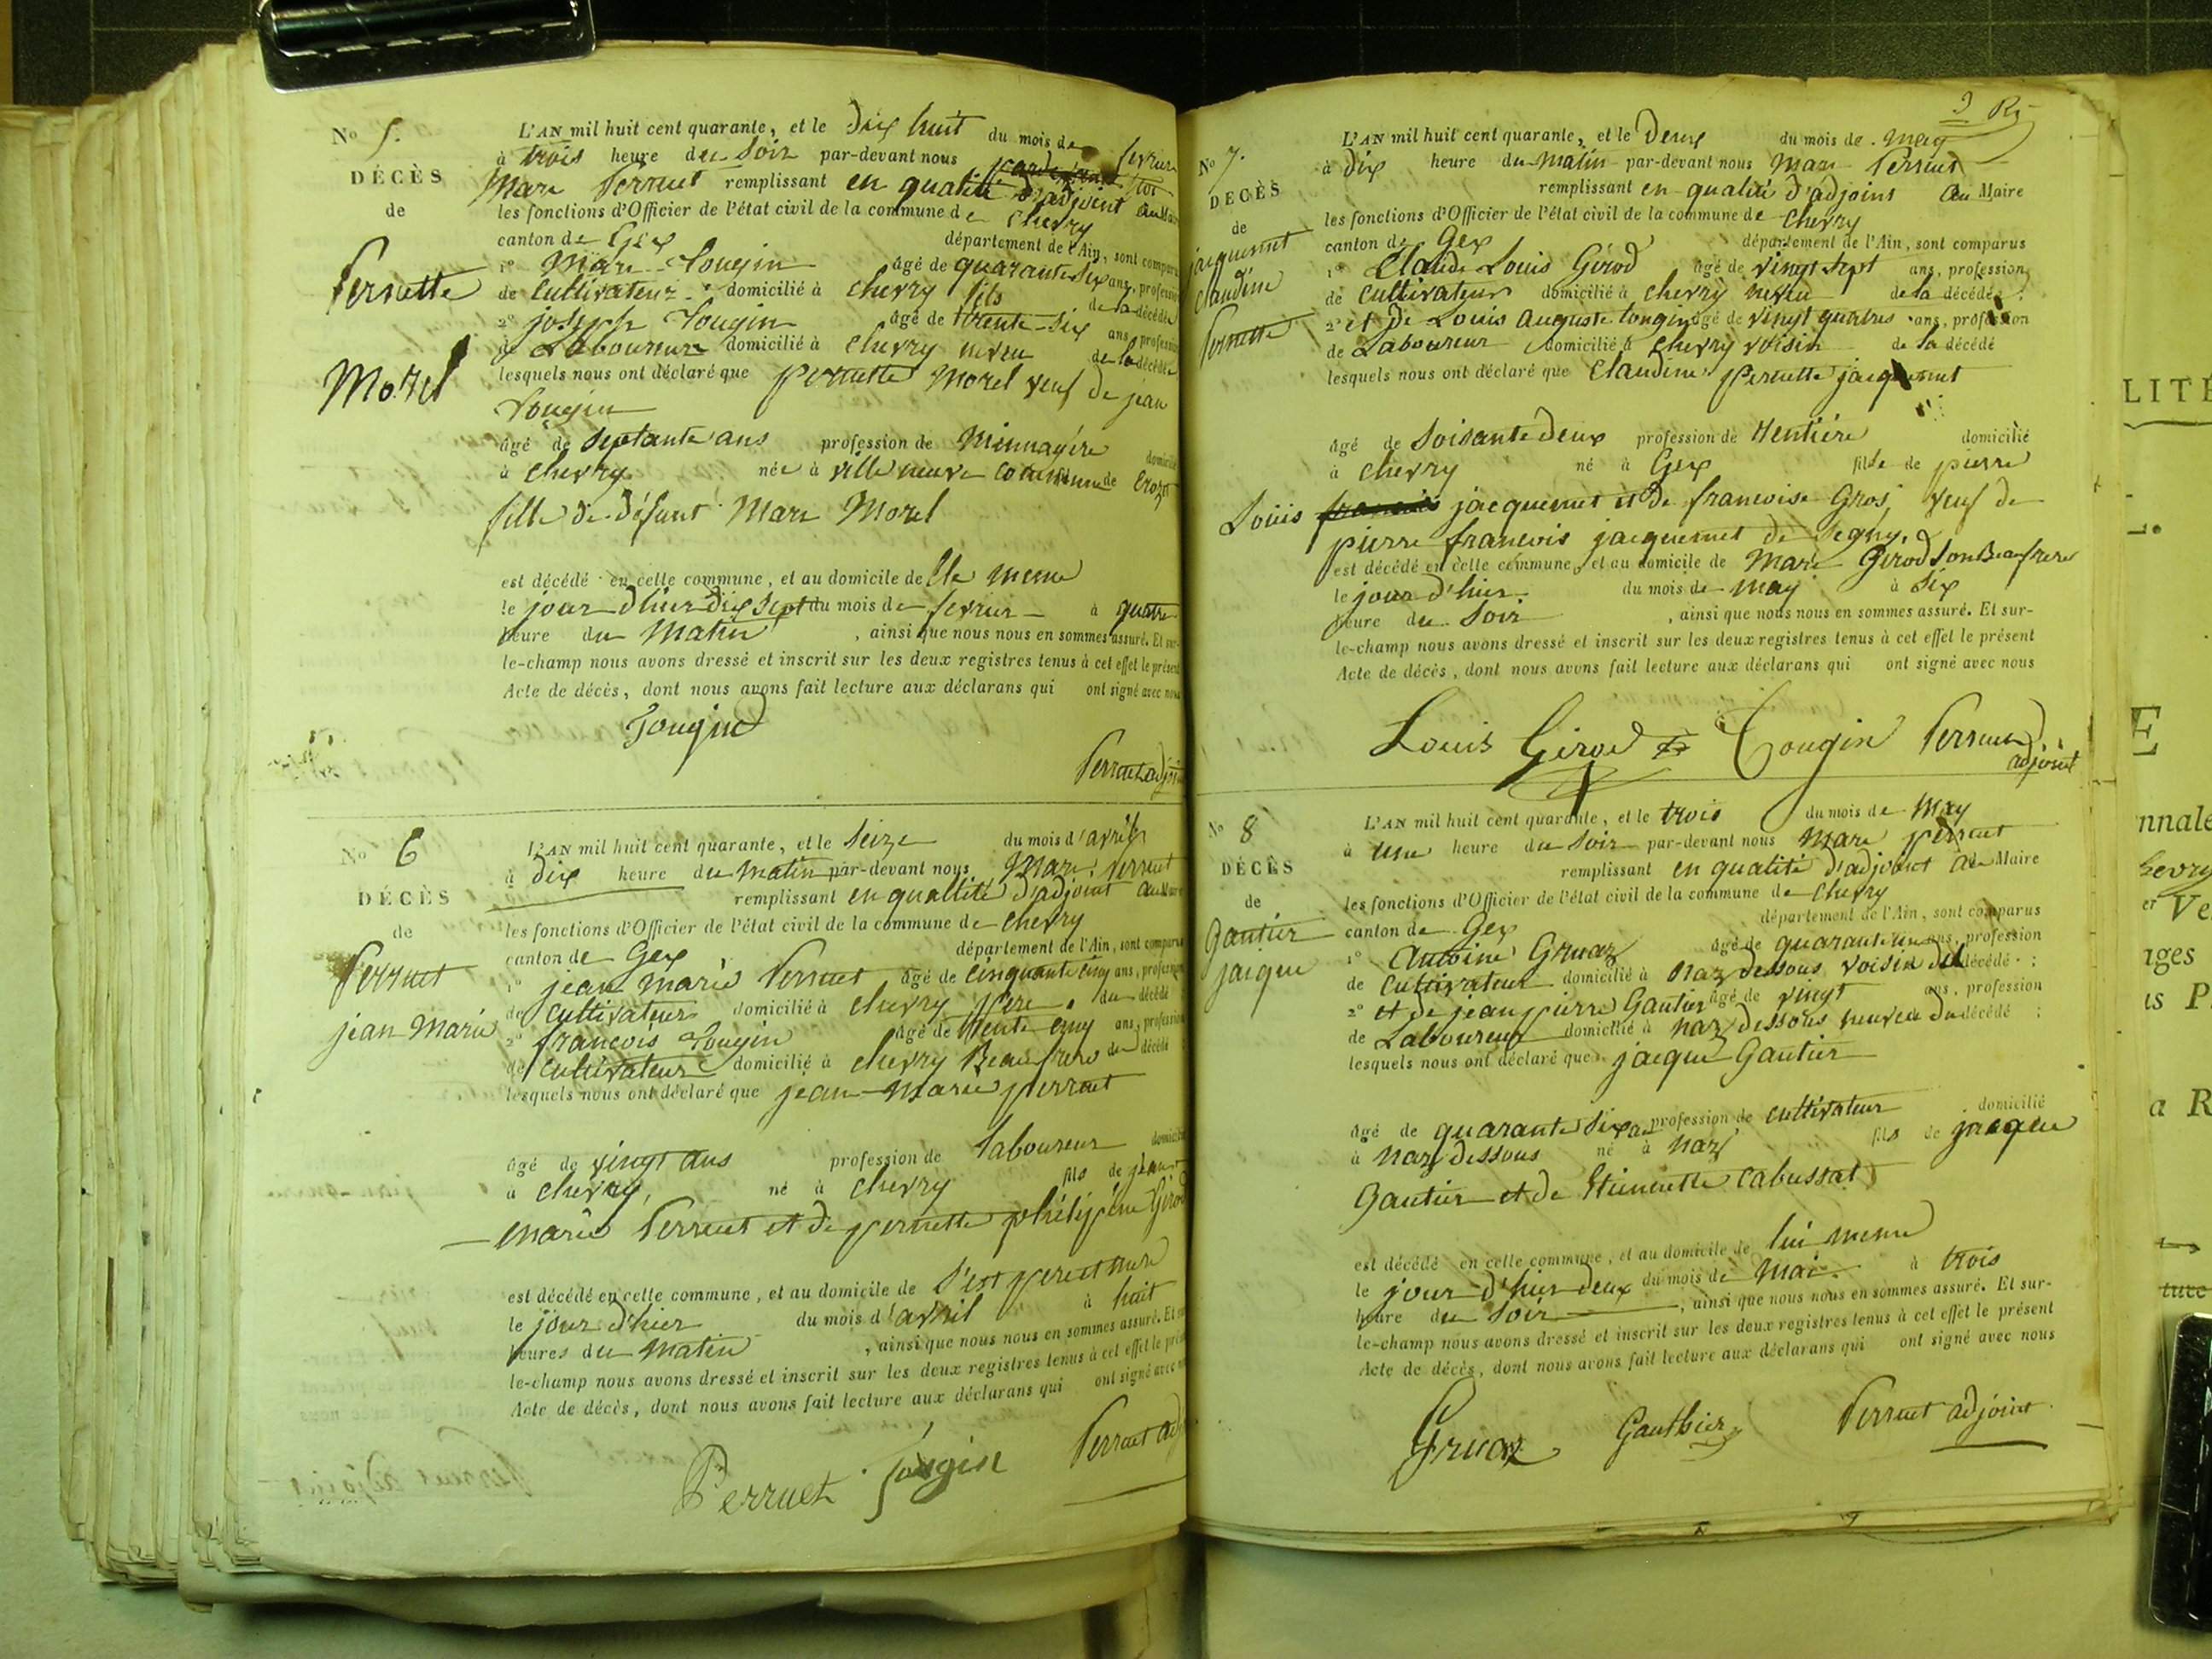 No 5.
DÉCÈS
de
Pernette
Morel
L'AN mil huit cent quarante, et le dix huit du mois de fevrier
à trois heure du Soir par-devant nous
Marc Perruet remplissant en qualité d'adjoint au Maire
les fonctions d'Officier de l'état civil de la commune de chevry
canton de Gex département de l'Ain, sont comparus
1° Marc Tougin âgé de quarante six ans, profession
de Cultivateur domicilié à chevry fils de la décédée
2° joseph Tougin âgé de trente-six ans, profession
de Laboureur domicilié à chevry neveu de la décédée
lesquels nous ont déclaré que pernette Morel veuf de jean
Tougin
âgé de septante ans profession de Mennagére domicilié
à chevry née à villeneuve commune de Crozet
fille de défunt Marc Morel
est décédé en celle commune, et au domicile de Elle meme
le jour d'hier dix sept du mois de fevrier à quatre
heure du Matin , ainsi que nous nous en sommes assuré. Et sur-
le-champ nous avons dressé et inscrit sur les deux registres tenus à cet effet le présent
Acte de décès, dont nous avons fait lecture aux déclarans qui ont signé avec nous
Tougin
Perruet adjoint
No 6
DÉCÈS
de
Perruet
jean Marie
L'AN mil huit cent quarante, et le Seize du mois d'avril
à dix heure du matin par-devant nous Marc Perruet
remplissant en quallité d'adjoint au Maire
les fonctions d'Officier de l'état civil de la commune de chevry
canton de Gex département de l'Ain, sont comparus
1° jean marie Perruet âgé de cinquante cinq ans, profession
de cultivateur domicilié à chevry père du décédé
2° francois Tougin âgé de trente cinq ans, profession
de cultivateur domicilié à chevry Beaufrere du décédé
lesquels nous ont déclaré que jean-Marie perruet
âgé de vingt ans profession de laboureur domicilié
à chevry, né à chevry fils de jean
marie Perruet et de pernette philipine Girod
est décédé en celle commune, et au domicile de s'est pere et mere
le jour d'hier du mois d'avril à huit
heures du matin , ainsi que nous nous en sommes assuré. Et sur-
le-champ nous avons dressé et inscrit sur les deux registres tenus à cet effet le présent
Acte de décès, dont nous avons fait lecture aux déclarans qui ont signé avec nous
Perruet Tougin Perruet adj
No 7.
DÉCÈS
de
jacquemet
claudine
Pernette
L'AN mil huit cent quarante, et le Deux du mois de may
à dix heure du matin par-devant nous Marc Perruet
remplissant en qualité d'adjoint au Maire
les fonctions d'Officier de l'état civil de la commune de chevry
canton de Gex département de l'Ain, sont comparus
1° Claude Louis Girod âgé de vingt sept ans, profession
de cultivateur domicilié à chevry neveu de la décédée;
2° et de Louis auguste tougin âgé de vingt quatres ans, profession
de Laboureur domicilié à chevry voisin de la décédé
lesquels nous ont déclaré que Claudine pernette jacquemet
âgé de soisante deux profession de Rentiére domicilié
à chevry né à Gex fille de pierre
Louis francois jacquemet et de francoise Gros, veuf de
pierre francois jacquemet de segny.
est décédé en celle commune, et au domicile de Marc Girod son Beaufrere
le jour d'hier du mois de may à six
heure du soir , ainsi que nous nous en sommes assuré. Et sur-
le-champ nous avons dressé et inscrit sur les deux registres tenus à cet effet le présent
Acte de décès, dont nous avons fait lecture aux déclarans qui ont signé avec nous
Louis Girod Tougin Perruet
adjoint
No 8
DÉCÈS
de
Gautier
jacque
L'AN mil huit cent quarante, et le trois du mois de may
à une heure du soir par-devant nous Marc perruet
remplissant en qualité d'adjoint au Maire
les fonctions d'Officier de l'état civil de la commune de chevry
canton de Gex département de l'Ain, sont comparus
1° Antoine Gruaz âgé de quarante un ans, profession
de cultivateur domicilié à Naz dessous voisin du décédé;
2° et de jean pierre Gautier âgé de vingt ans, profession
de Laboureur domicilié à naz dessous neuveu du décédé;
lesquels nous ont déclaré que jacque Gautier
âgé de quarante six ans profession de cultivateur domicilié
à Naz dessous né à Naz fils de jacque
Gautier et de Etiennette Cabussat
est décédé en celle commune, et au domicile de lui meme
le jour d'hier deux du mois de Mai. à trois
heure du soir , ainsi que nous nous en sommes assuré. Et sur-
le-champ nous avons dressé et inscrit sur les deux registres tenus à cet effet le présent
Acte de décès, dont nous avons fait lecture aux déclarans qui ont signé avec nous
Gruaz Gauthier Perruet adjoint
LITÉ
E
nnale
hevry
er Ve
ages
is P
a R